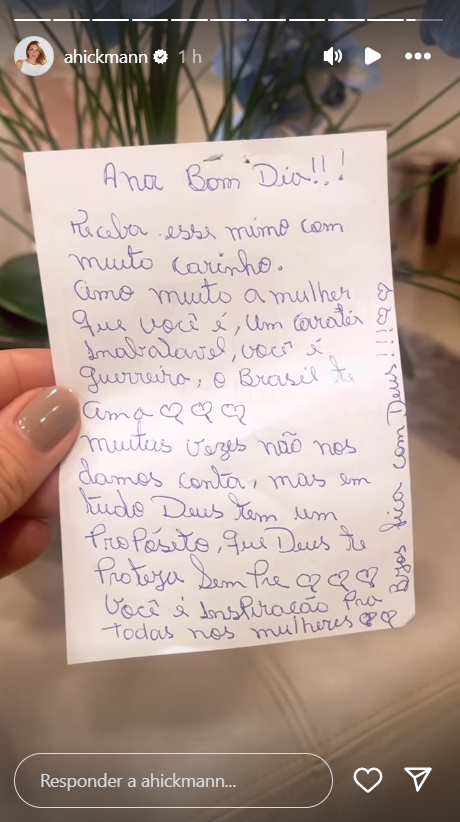 ahickmann 1 h
Ana Bom Dia!!!
Receba esse mimo com
muito carinho.
Amo muito a mulher
que você é, um carater
Inabalavel, você é
guerreira, o Brasil te
ama ♡♡♡
muitas vezes não nos
damos conta, mas em
tudo Deus tem um
Propósito, que Deus te
Proteja Sempre ♡♡♡
Você é Inspiração Pra
Todas nos mulheres ♡♡
Bjos fica com Deus!!! ♡♡
Responder a ahickmann...